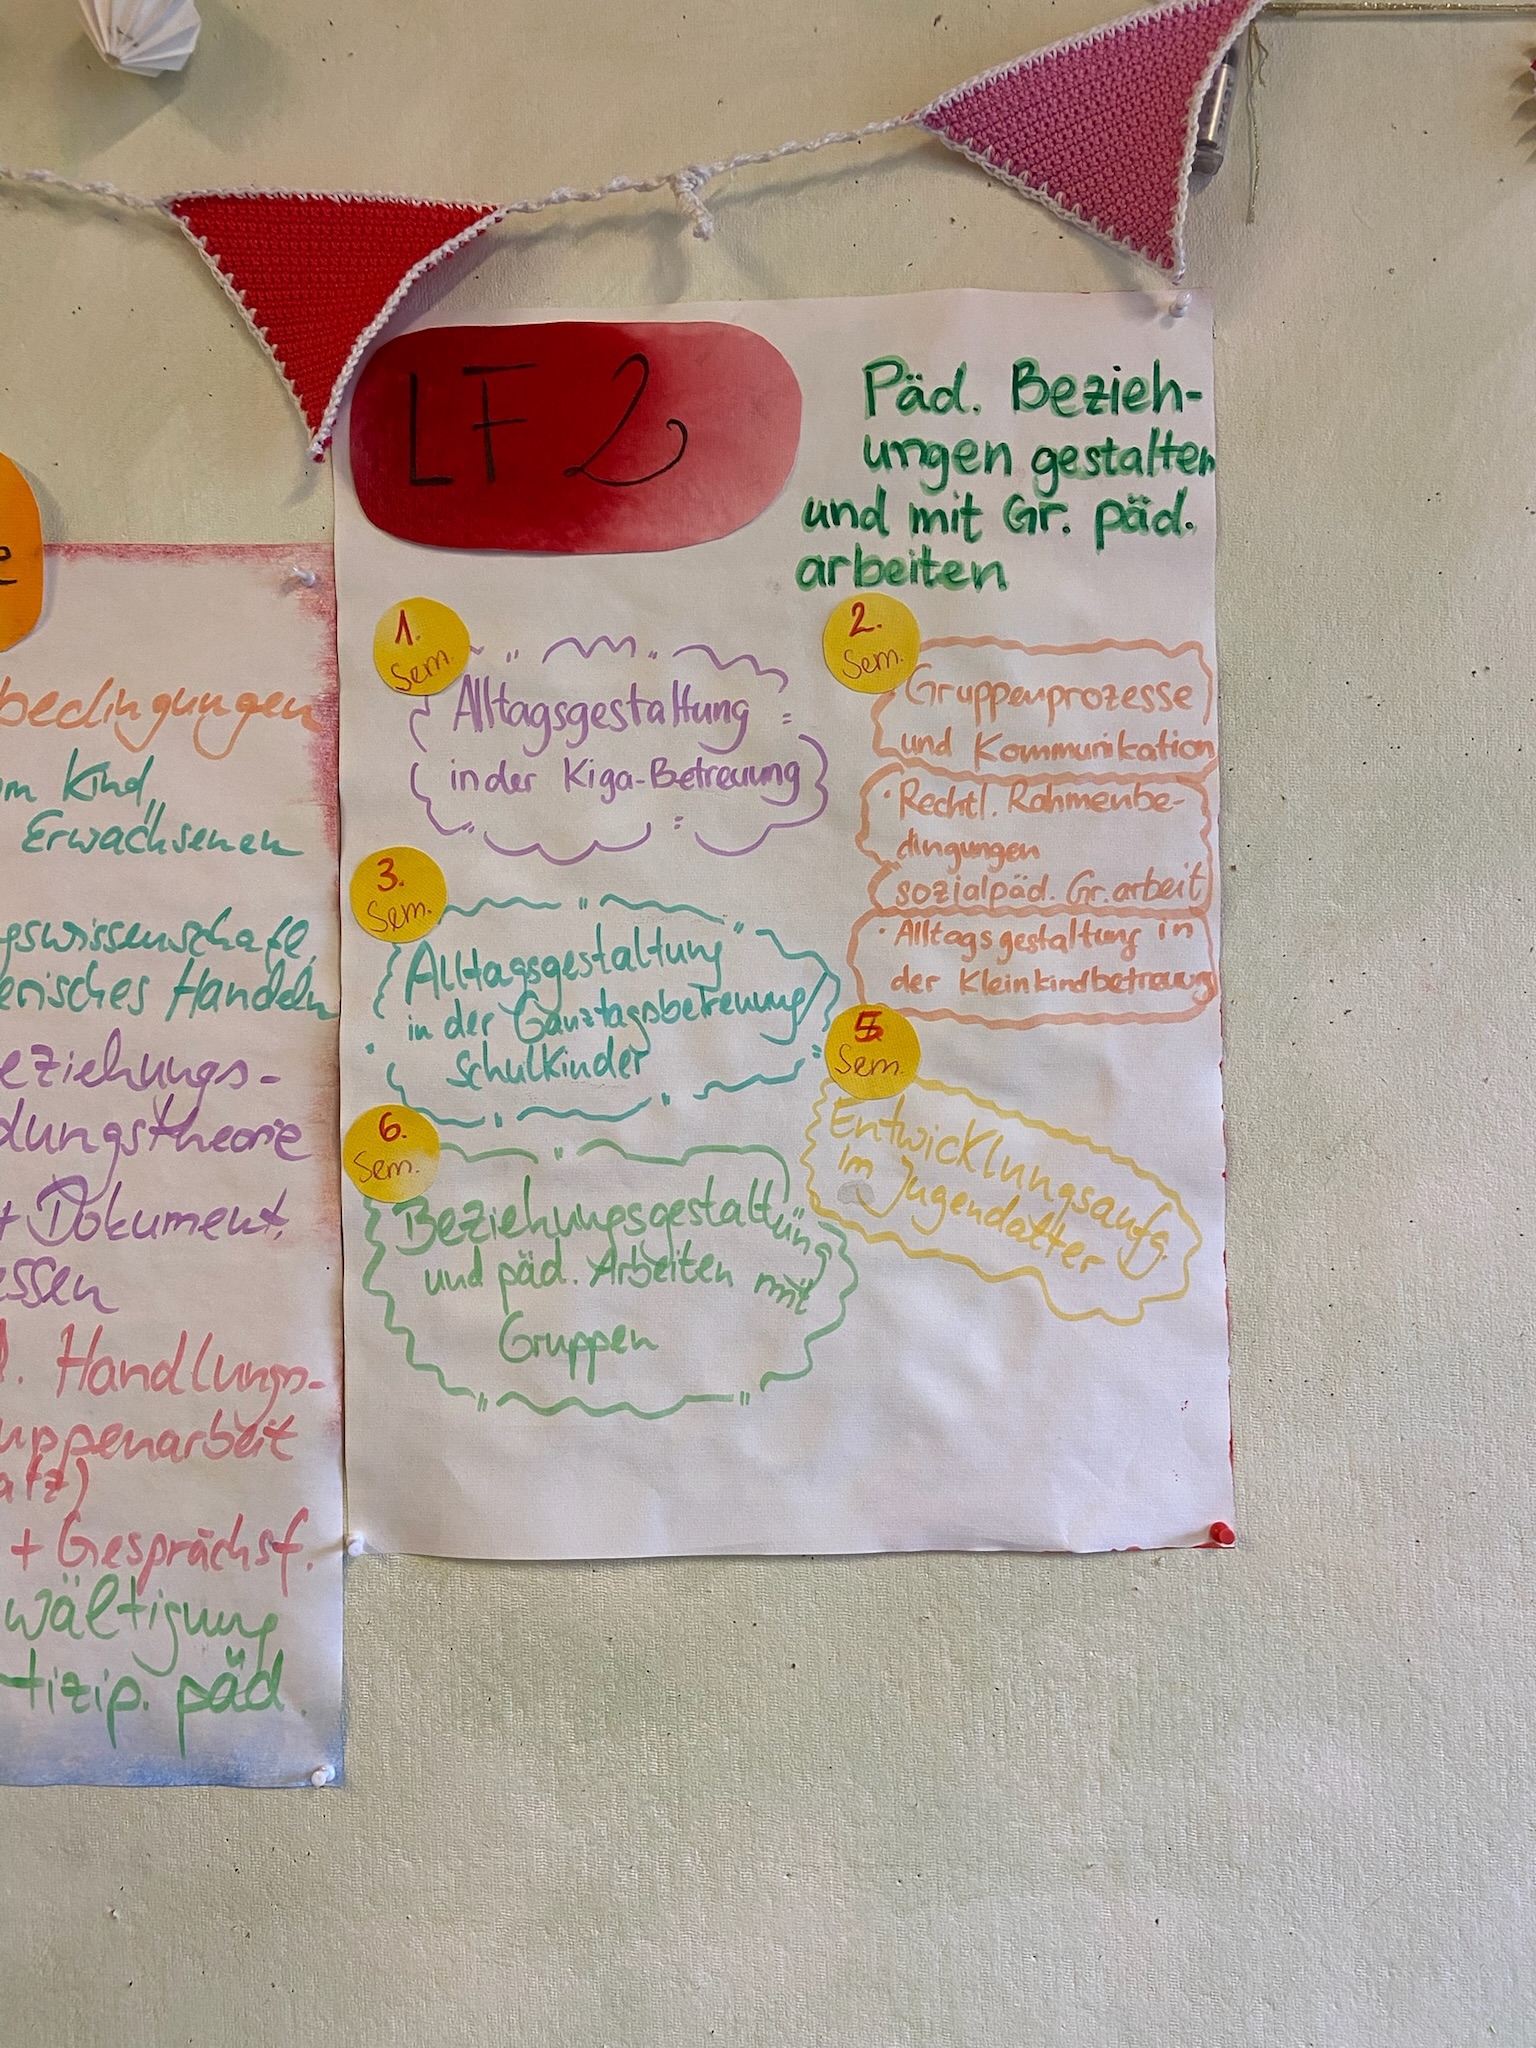 LF 2
Päd. Bezieh-
ungen gestalten
und mit Gr. päd.
arbeiten
1.
Sem.
Alltagsgestaltung
in der Kiga-Betreuung
2.
Sem.
Gruppenprozesse
und Kommunikation
· Rechtl. Rahmenbe-
dingungen
sozialpäd. Gr. arbeit
· Alltagsgestaltung in
der Kleinkindbetreuung
3.
Sem.
Alltagsgestaltung
in der Ganztagsbetreuung
Schulkinder
5
Sem.
Entwicklungsaufg.
im Jugendalter
6.
Sem.
Beziehungsgestaltung
und päd. Arbeiten mit
Gruppen
e
bedingungen
m Kind
Erwachsenen
gswissenschaftl.
erisches Handeln
eziehungs-
dungstheorie
+ Dokument.
essen
. Handlungs-
uppenarbeit
atz)
+ Gesprächsf.
wältigung
tizip. päd.